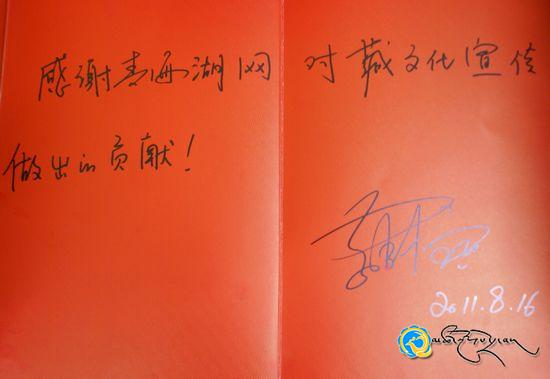 感谢青海湖网 对藏文化宣传
做出的贡献!
2011.8.16